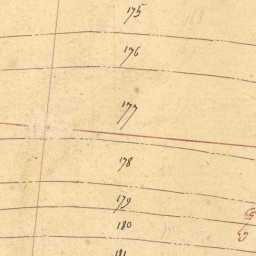 175
176
177
178
179
180
181